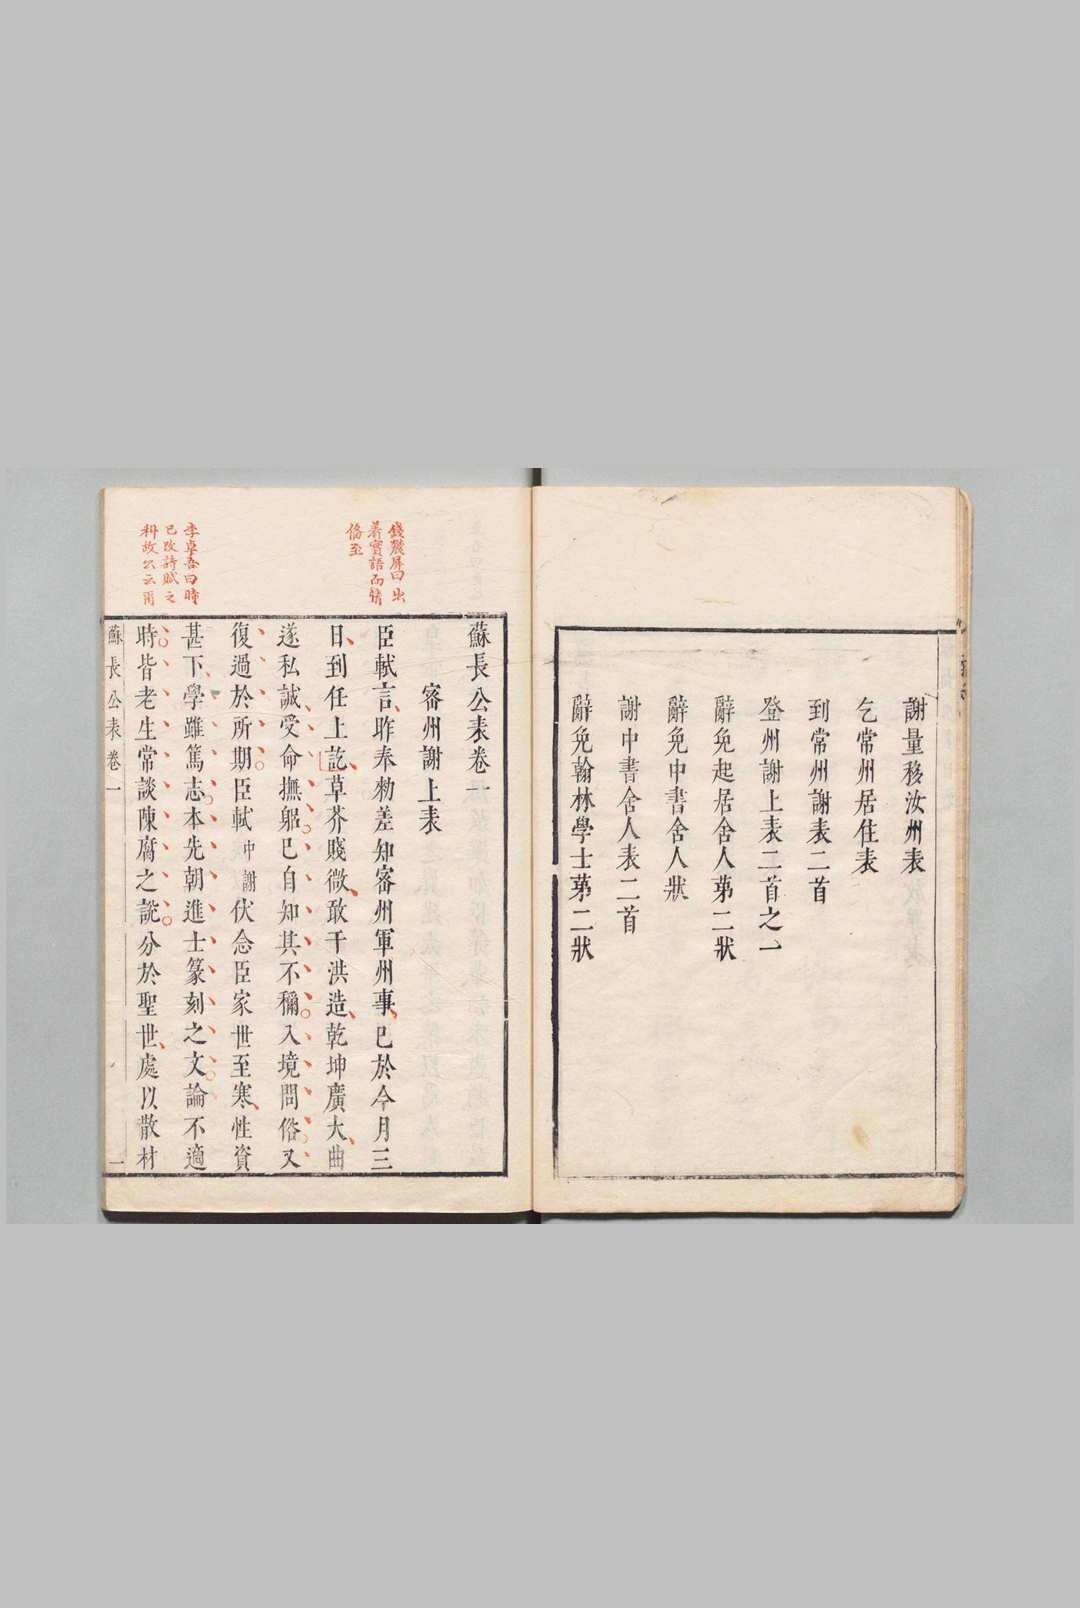 謝量移汝州表
乞常州居住表
到常州謝表二首
登州謝上表二首之一
辭免起居舍人苐二狀
辭免中書舍人狀
謝中書舍人表二首
辭免翰林學士苐二狀
錢農屏曰出
着實語而情
俻至
李卓吾曰時
已改詩賦之
科故公云爾
蘇長公表卷一
宻州謝上表
臣軾言昨奉勑差知宻州軍州事已於今月三
日到任上訖草芥賤微敢干洪造乾坤廣大曲
遂私誠受命撫躬已自知其不稱入境問俗又
復過於所期臣軾中謝伏念臣家世至寒性資
甚下學雖篤志本先朝進士篆刻之文論不適
時皆老生常談陳腐之說分於聖世處以散材
蘇長公表卷一
一